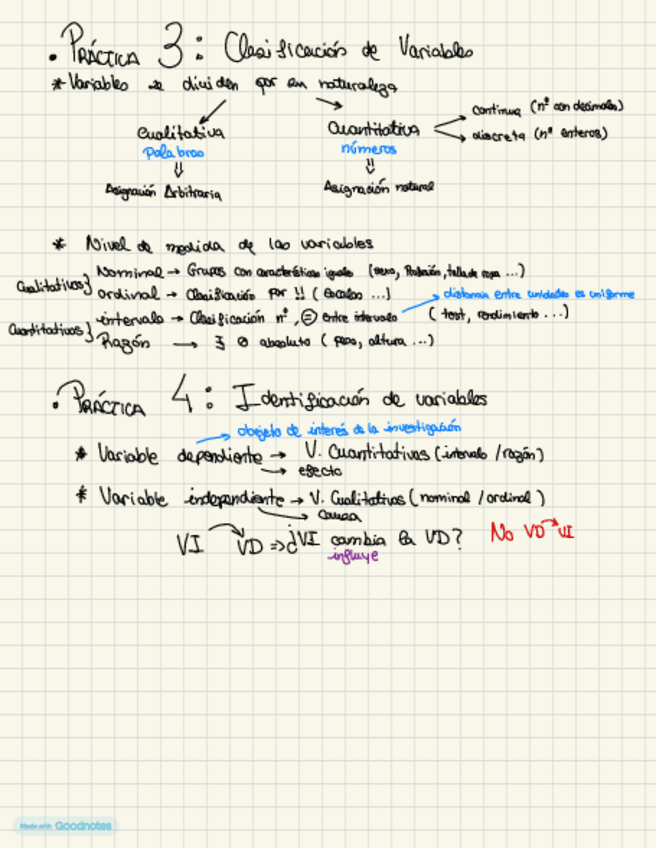 . PRÁCTICA 3: Clasificación de Variables
* Variables se dividen por su naturaleza
Cualitativa
Palabras
⇓
Asignación Arbitraria
Cuantitativa
números
⇓
Asignación natural
→ continua (nº con decimales)
→ discreta (nº enteros)
* Nivel de medida de las variables
Cualitativos}
Nominal → Grupos con características iguales (sexo, Población, talla de ropa ...)
ordinal → Clasificación por !! (Escalas ...)
→ distancia entre unidades es uniforme
Cuantitativos}
intervalo → Clasificación nº, = entre intervalo (test, rendimiento ...)
Razón → ∃ 0 absoluto (peso, altura ...)
. PRÁCTICA 4: Identificación de variables
→ objeto de interés de la investigación
* Variable dependiente → V. Cuantitativas (intervalo / razón)
→ efecto
* Variable independiente → V. Cualitativas (nominal / ordinal)
→ causa
VI → VD => ¿VI cambia la VD? No VD → VI
influye
Made with Goodnotes